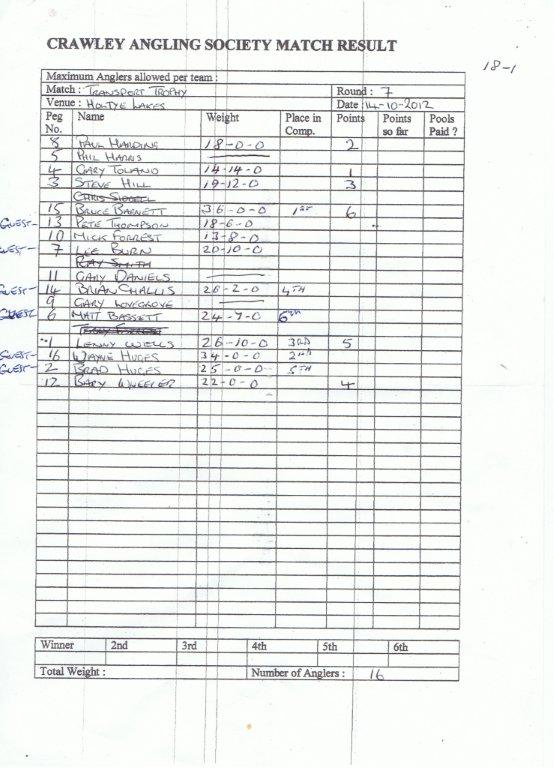 CRAWLEY ANGLING SOCIETY MATCH RESULT
18-1
Maximum Anglers allowed per team :
Match : TRANSPORT TROPHY Round : 7
Venue : HOLTYE LAKES Date : 14-10-2012
Peg No. Name Weight Place in Comp. Points Points so far Pools Paid ?
8 PAUL HARDING 18-0-0 2
5 PHIL HARRIS
4 GARY TOLAND 14-14-0 1
3 STEVE HILL 19-12-0 3
CHRIS SIDDELL
15 BRUCE BARNETT 36-0-0 1ST 6
GUEST- 13 PETE THOMPSON 18-6-0
10 MICK FORREST 13-8-0
7 LEE BURN 20-10-0
RAY SMITH
11 GARY DANIELS
GUEST- 14 BRIAN CHALLIS 26-2-0 4TH
9 GARY LOVEGROVE
GUEST 6 MATT BASSETT 24-7-0 6TH
TERRY FORREST
1 LENNY WELLS 26-10-0 3RD 5
GUEST- 16 WAYNE HUGES 34-0-0 2ND
GUEST- 2 BRAD HUGES 25-0-0 5TH
12 BARY WHEELER 22-0-0 4
Winner 2nd 3rd 4th 5th 6th
Total Weight : Number of Anglers : 16